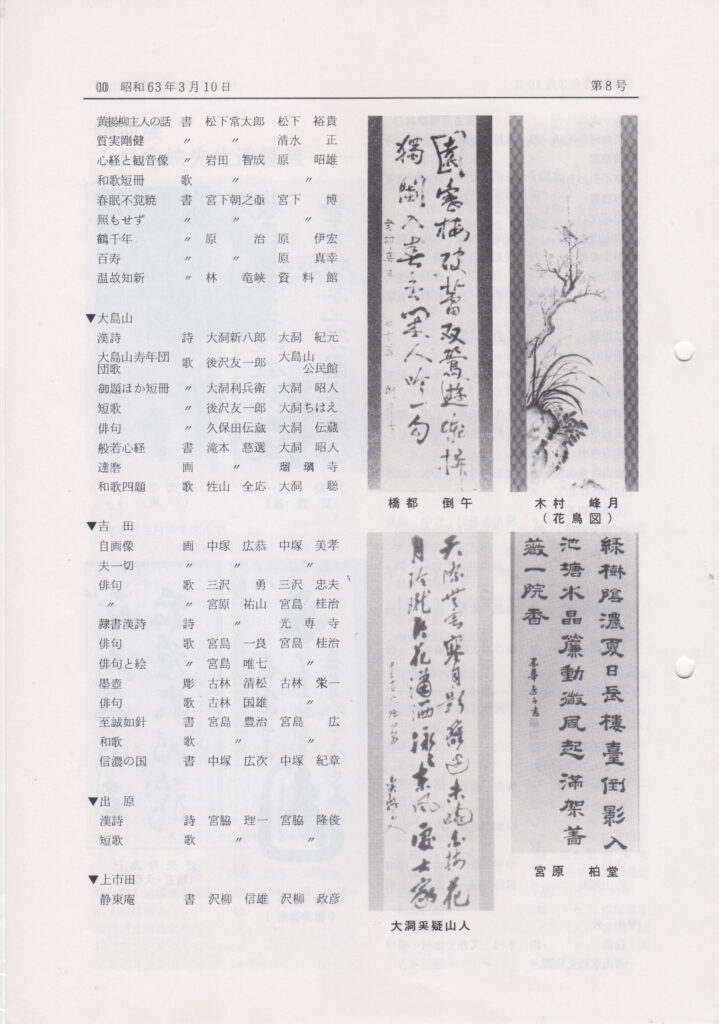 (10) 昭和63年3月10日
第8号
黄揚柳主人の話 書 松下常太郎 松下 裕貴
質実剛健 〃 〃 清水 正
心経と観音像 〃 岩田 智成 原 昭雄
和歌短冊 歌 〃 〃
春眠不覚暁 書 宮下朝之亟 宮下 博
照もせず 〃 〃 〃
鶴千年 〃 原 治 原 伊宏
百寿 〃 〃 原 真幸
温故知新 〃 林 竜峡 資料館
▼大島山
漢詩 詩 大洞新八郎 大洞 紀元
大島山寿年団団歌 歌 後沢友一郎 大島山公民館
御題ほか短冊 〃 大洞利兵衛 大洞 昭人
短歌 〃 後沢友一郎 大洞ちはえ
俳句 〃 久保田伝蔵 大洞 伝蔵
般若心経 書 滝本 慈選 大洞 昭人
達磨 画 〃 瑠璃寺
和歌四題 歌 性山 全応 大洞 聡
▼吉田
自画像 画 中塚 広恭 中塚 美孝
夫一切 〃 〃 〃
俳句 歌 三沢 勇 三沢 忠夫
〃 〃 宮原 祐山 宮島 桂治
隷書漢詩 詩 〃 光専寺
俳句 歌 宮島 一良 宮島 桂治
俳句と絵 〃 宮島 唯七 〃
墨壺 彫 古林 清松 古林 栄一
俳句 歌 古林 国雄 〃
至誠如針 書 宮島 豊治 宮島 広
和歌 歌 〃 〃
信濃の国 書 中塚 広次 中塚 紀章
▼出原
漢詩 詩 宮脇 理一 宮脇 隆俊
短歌 歌 〃 〃
▼上市田
静東庵 書 沢柳 信雄 沢柳 政彦
橋都 倒午
木村 峰月
(花鳥図)
緑樹陰濃夏日長樓臺倒影入
池塘水晶簾動微風起滿架薔
薇一院香
宮原 柏堂
大洞奚疑山人